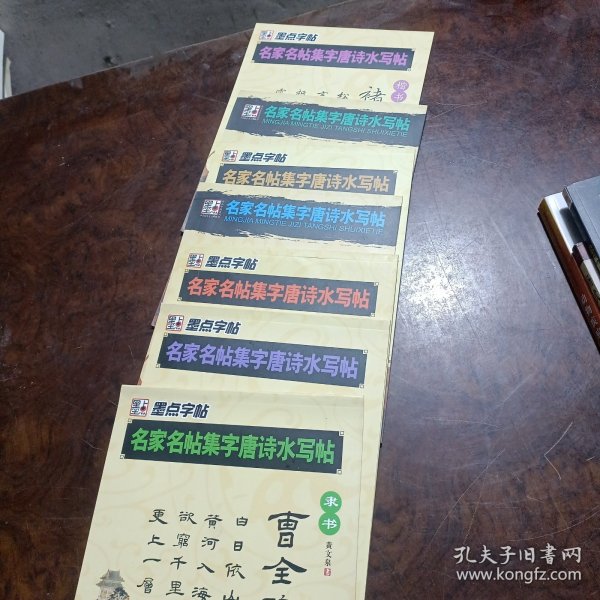 墨点字帖
名家名帖集字唐诗水写帖
楷书
褚
名家名帖集字唐诗水写帖
MINGJIA MINGTIE JIZI TANGSHI SHUIXIETIE
墨点字帖
名家名帖集字唐诗水写帖
名家名帖集字唐诗水写帖
MINGJIA MINGTIE JIZI TANGSHI SHUIXIETIE
墨点字帖
名家名帖集字唐诗水写帖
墨点字帖
名家名帖集字唐诗水写帖
墨点字帖
名家名帖集字唐诗水写帖
隶书
黄文泉
曹全
白日依山
黄河入海
欲窮千里
更上一層
孔夫子旧书网
www.kongfz.com